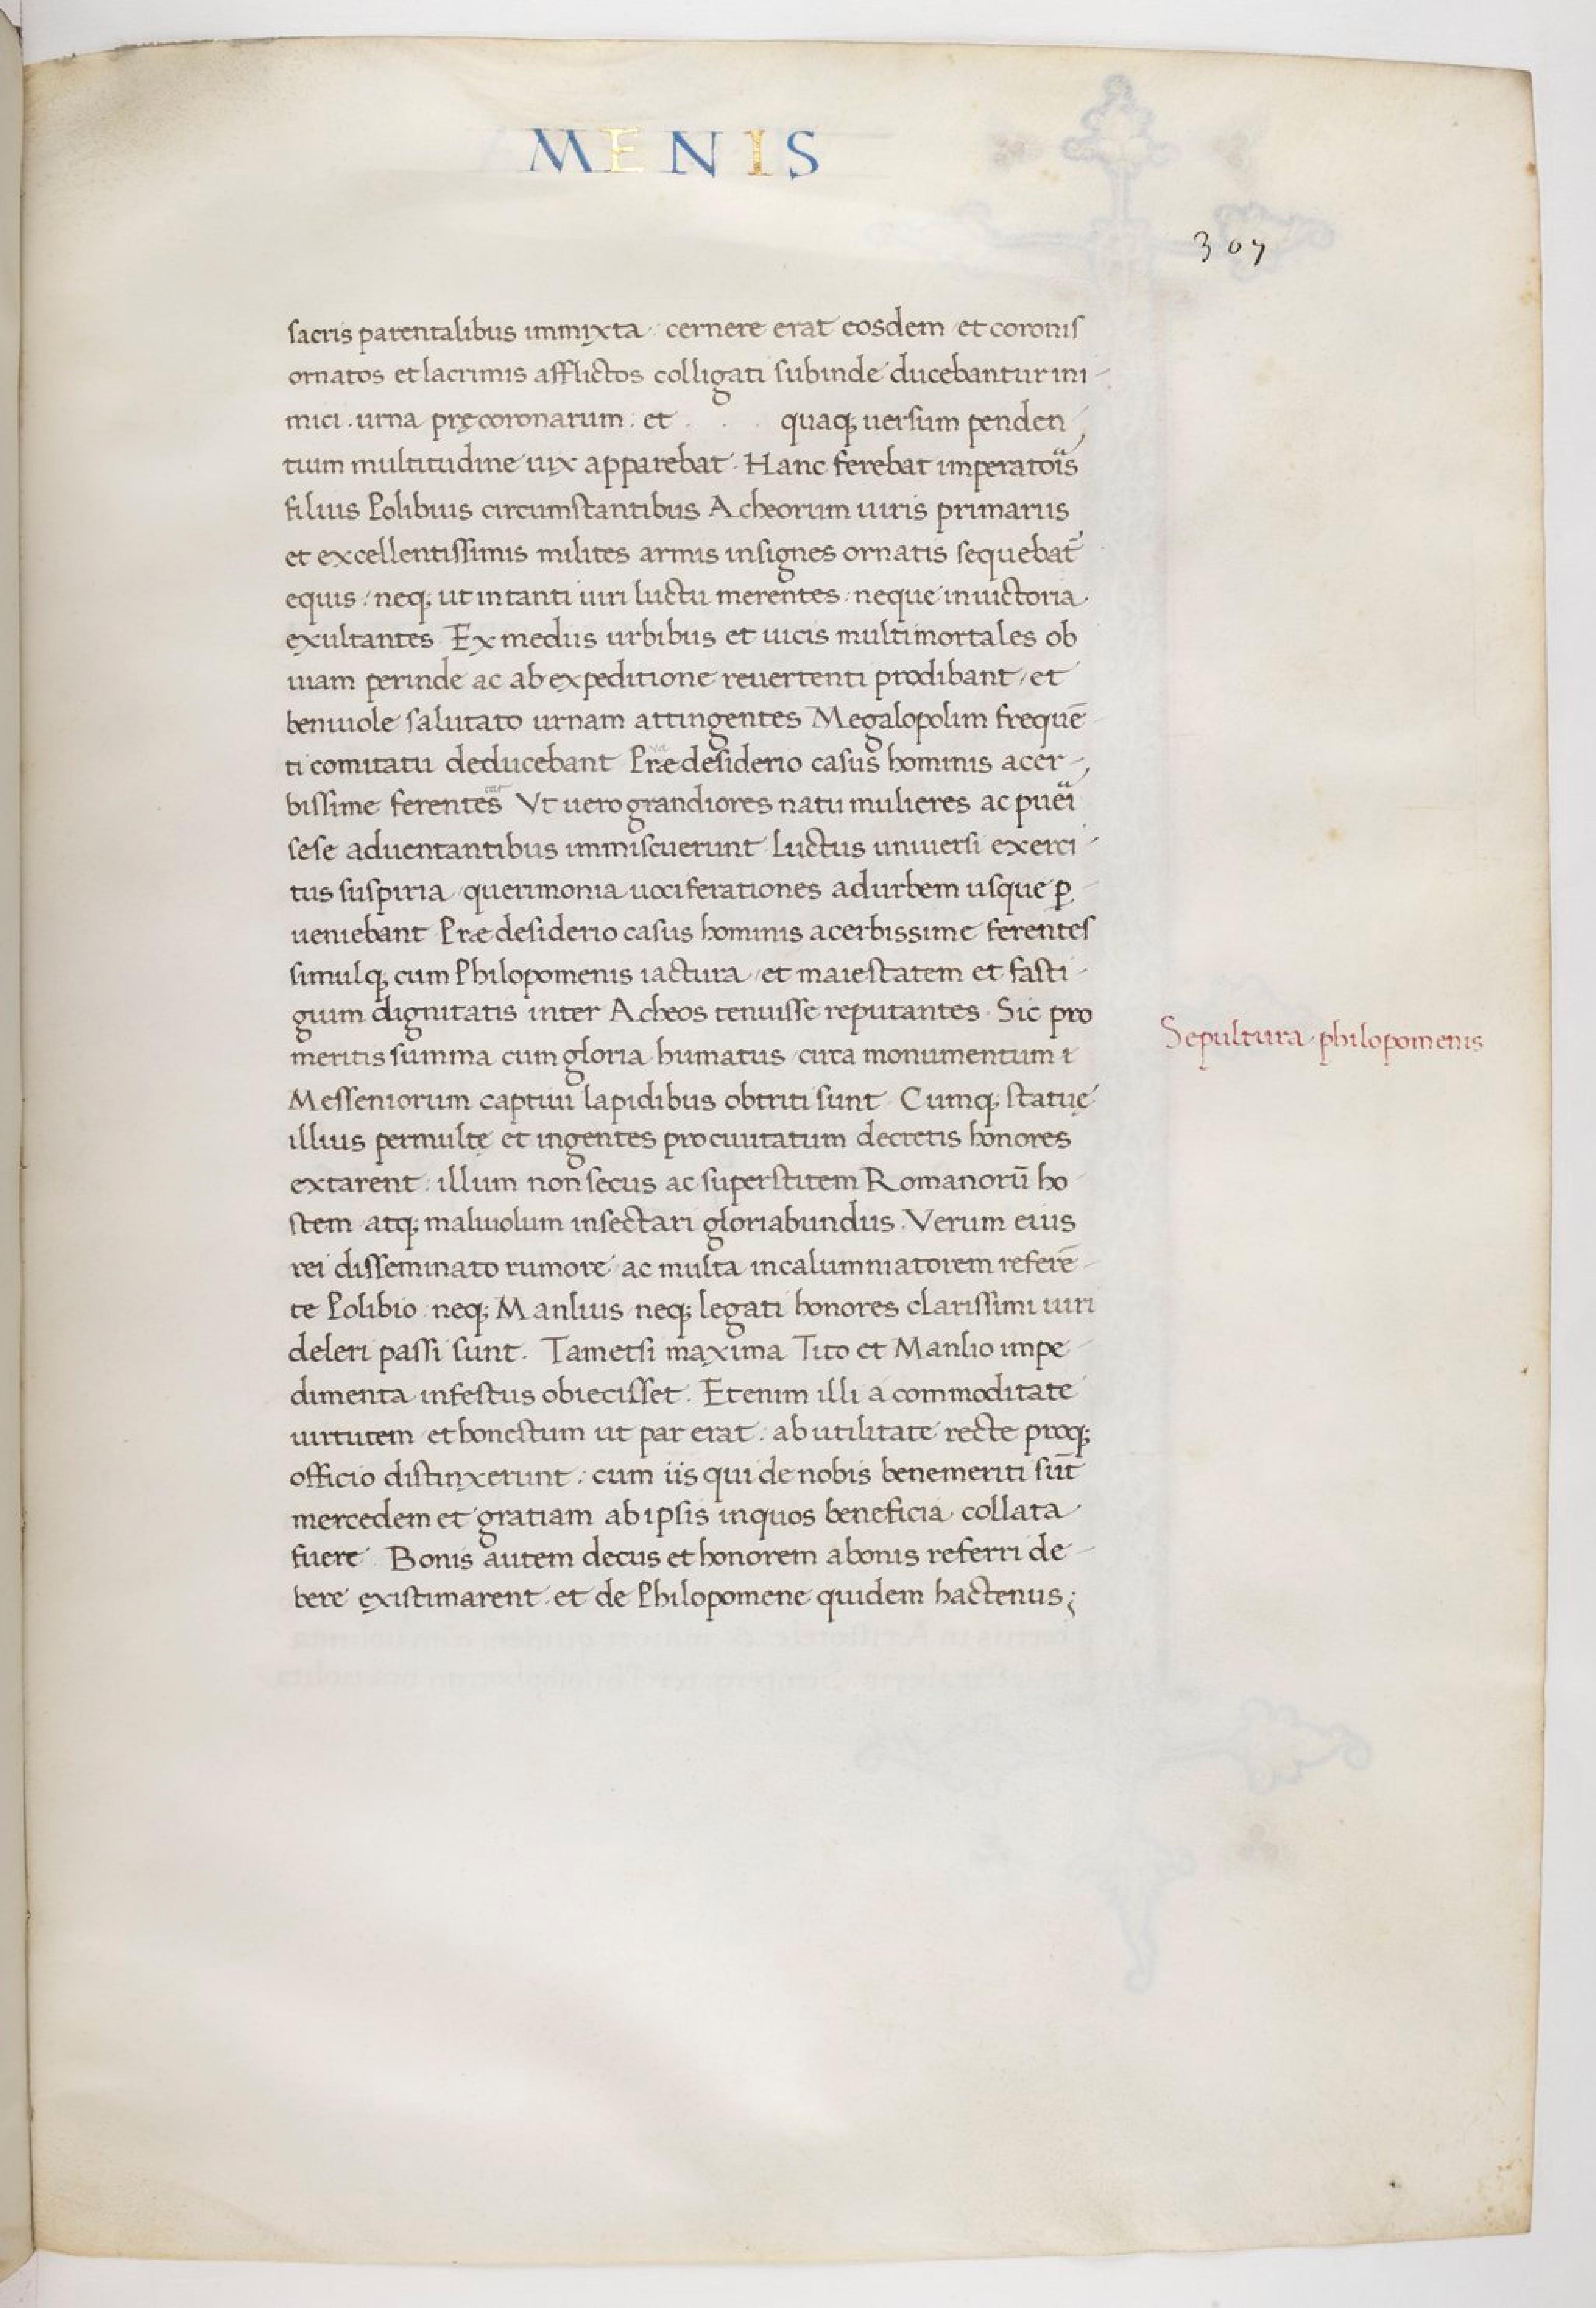 MENIS
307
sacris parentalibus immixta. cernere erat eosdem et coronis
ornatos et lacrimis afflictos colligati subinde ducebantur ini-
mici. urna pręcoronarum: et . . . quaq; uersum penden
tium multitudine uix apparebat. Hanc ferebat imperatoris
filius Polibius circumstantibus Acheorum uiris primariis
et excellentissimis milites armis insignes ornatis sequebat̄
equis: neq; ut in tanti uiri luctu merentes: neque in uictoria
exultantes Ex mediis urbibus et uicis multi mortales ob
uiam perinde ac ab expeditione reuertenti prodibant, et
beniuole salutato urnam attingentes Megalopolim frequē-
ti comitatu deducebant Præ desiderio casus hominis acer-
bissime ferentes Vt uero grandiores natu mulieres ac pueri
sese aduentantibus immiscuerunt Luctus uniuersi exerci-
tus suspiria querimonia uociferationes ad urbem usque ꝑ-
ueniebant Præ desiderio casus hominis acerbissime ferentes
simulq; cum Philopomenis iactura, et maiestatem et fasti-
gium dignitatis inter Acheos tenuisse reputantes. Sic pro
meritis summa cum gloria humatus circa monumentum i
Sepultura philopomenis
Messeniorum captiui lapidibus obtriti sunt Cumq; statuę
illius permultę et ingentes pro ciuitatum decretis honores
extarent: illum non secus ac superstitem Romanorū ho-
stem atq; maliuolum insectari gloriabundus. Verum eius
rei disseminato rumore ac multa in calumniatorem referē-
te Polibio: neq; Manlius neq; legati honores clarissimi uiri
deleri passi sunt. Tametsi maxima Tito et Manlio impe-
dimenta infestus obiecisset. Etenim illi a commoditate
uirtutem et honestum ut par erat: ab utilitate recte proq;
officio distinxerunt: cum iis qui de nobis benemeriti sūt
mercedem et gratiam ab ipsis in quos beneficia collata
fuere Bonis autem decus et honorem a bonis referri de-
bere existimarent et de Philopomene quidem hactenus;